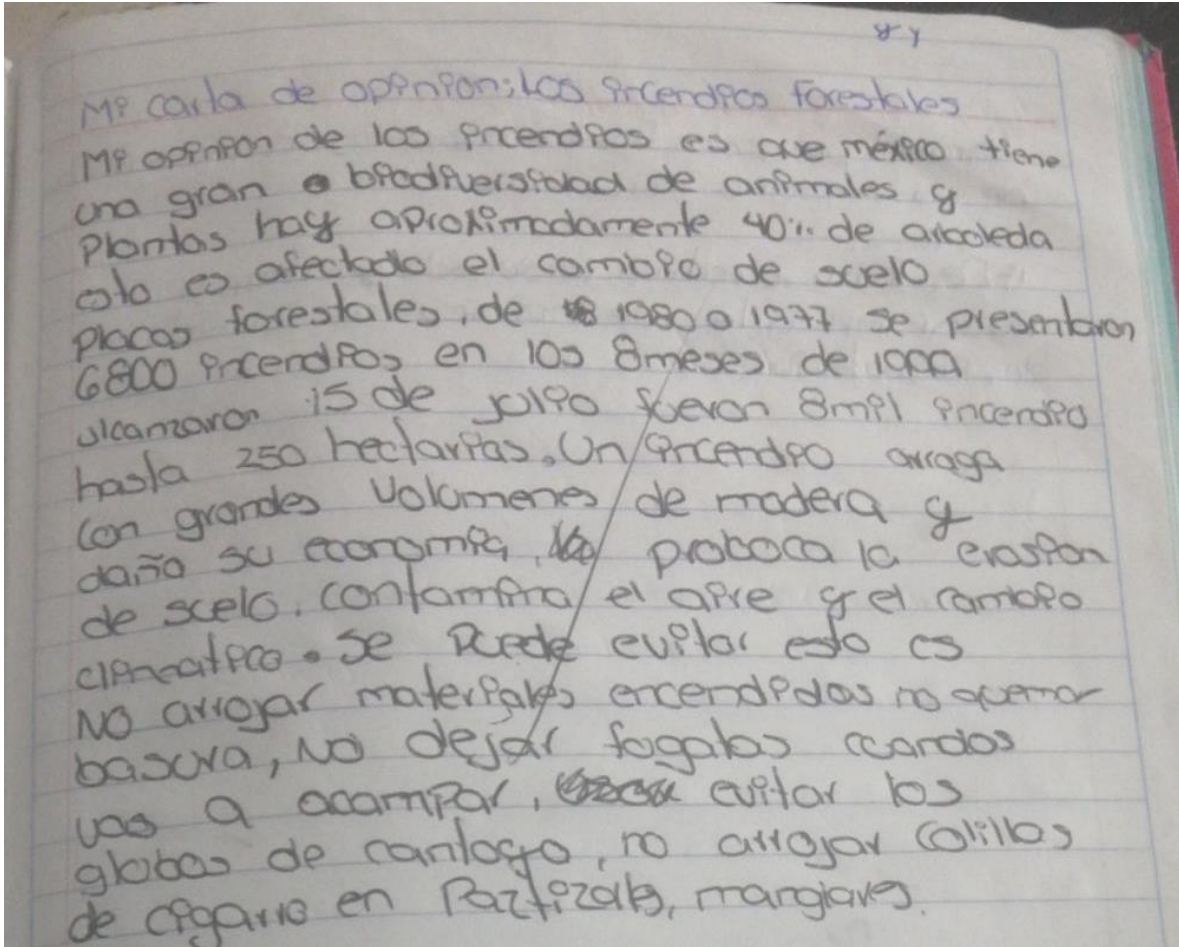 Mi carta de opinion: Los incendios forestales
Mi opinion de los incendios es que méxico tiene
una gran biodiversidad de animales y
Plantas hay aproximadamente 40% de arboleda
esto es afectado el cambio de suelo
Placas forestales, de 1980 a 1977 se presentaron
6800 incendios en los 8 meses de 1999
alcanzaron 15 de julio fueron 8 mil incendio
hasta 250 hectarias. Un incendio arraga
con grandes Volumenes de madera y
daña su economia, proboca la erosion
de suelo. contamina el aire y el cambio
climatico. Se Puede evitar esto es
NO arrojar materiales encendidas no quemar
basura, NO dejar fogatas cuandos
vas a acampar, evitar los
globos de cantoyo, no arrojar colillas
de cigarro en Paztizales, manglares.